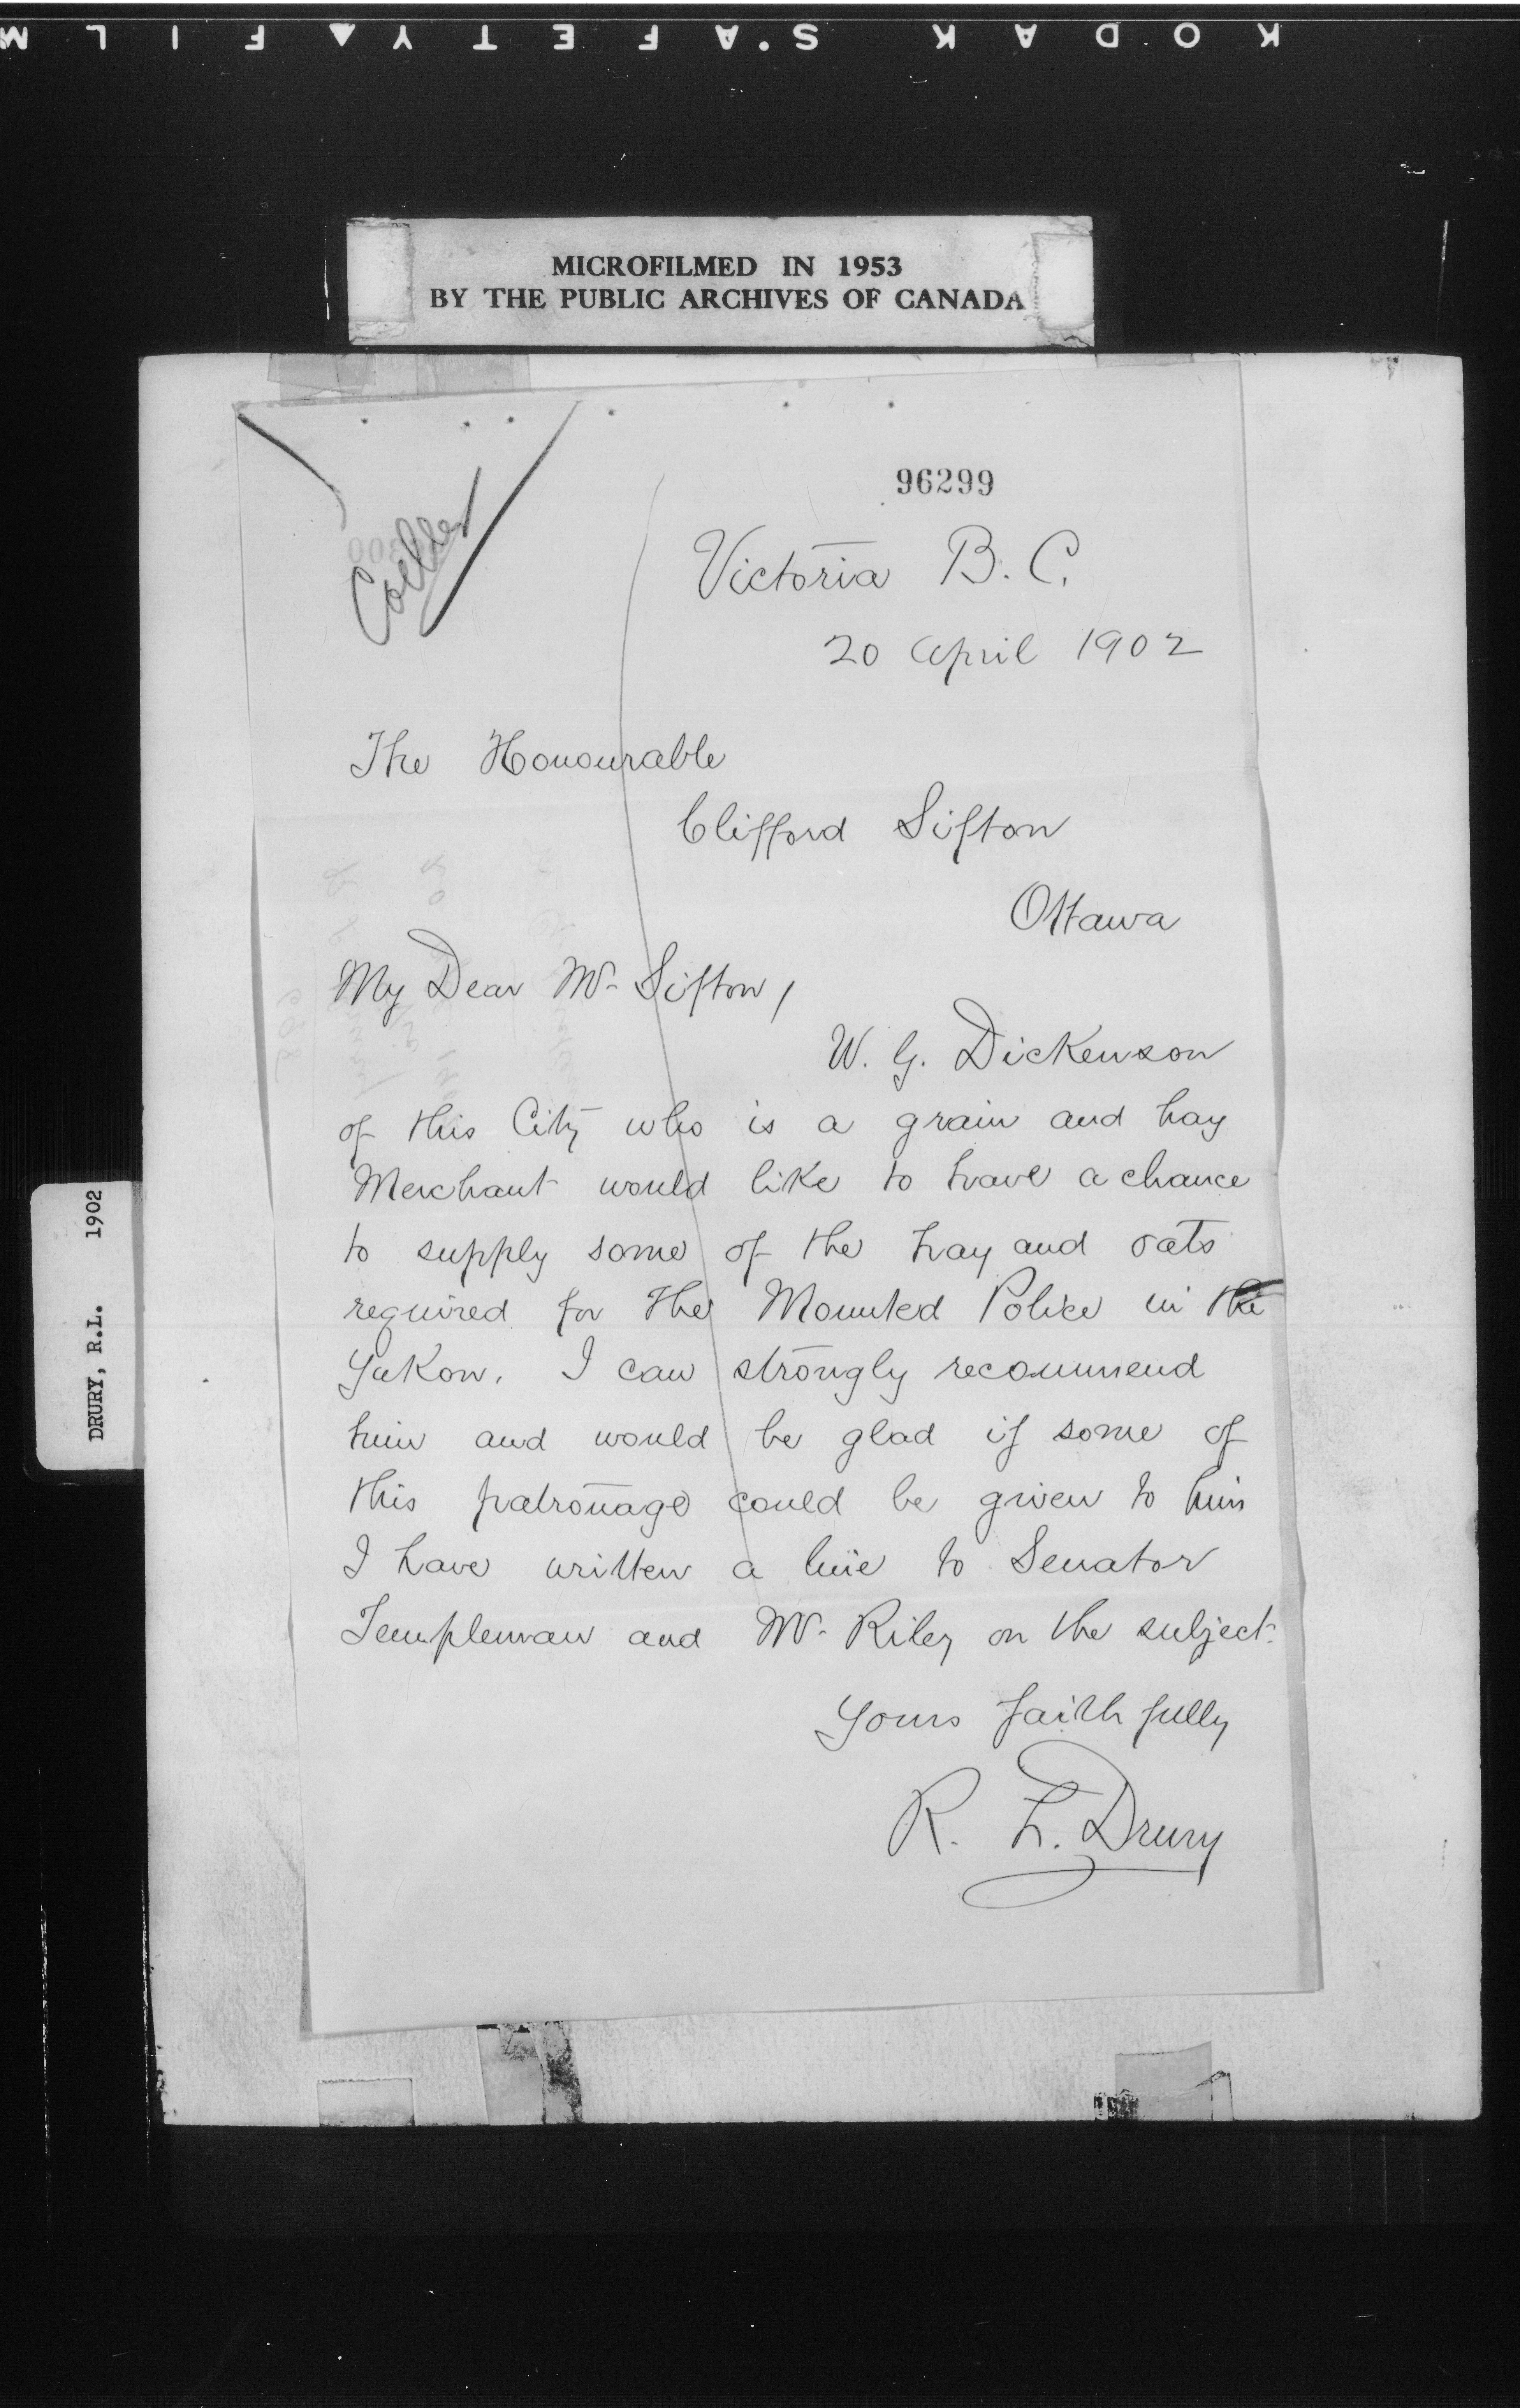 KODAK SAFETY FILM
MICROFILMED IN 1953
BY THE PUBLIC ARCHIVES OF CANADA
DRURY, R.L. 1902
96299
Victoria B. C.
20 April 1902
The Honourable
Clifford Sifton
Ottawa
My Dear Mr Sifton,
W. G. Dickenson
of this City who is a grain and hay
Merchant would like to have a chance
to supply some of the hay and oats
required for the Mounted Police in the
Yukon. I can strongly recommend
him and would be glad if some of
this patronage could be given to him
I have written a line to Senator
Templeman and Mr. Riley on the subject.
Yours faithfully
R. L. Drury